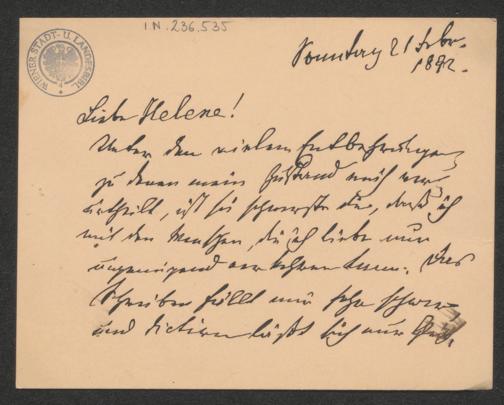 I.N. 236.535
WIENER STADT- U. LANDESBIBL.
Sonntag 21 Febr.
1892.
Liebe Helene!
Unter den vielen Entbehrungen
zu denen mein Zustand mich ver-
urtheilt, ist die schwerste die, daß ich
mit den Menschen, die ich liebe nur
ungenügend verkehren kann. Das
Schreiben fällt mir sehr schwer
und dictiren läßt sich nur